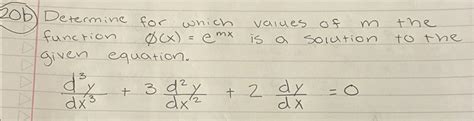 20b) Determine for which values of m the
function φ(x) = e^{mx} is a solution to the
given equation.
d³y/dx³ + 3 d²y/dx² + 2 dy/dx = 0